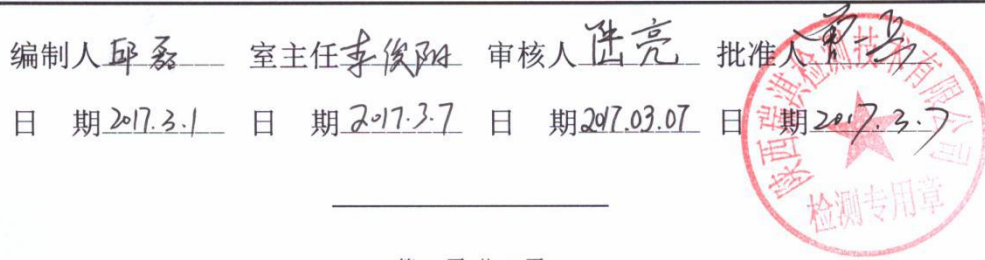 编制人邱磊 室主任李俊阳 审核人陆亮 批准人
日 期2017.3.1 日 期2017.3.7 日 期2017.03.07 日 期2017.3.7
陕西瑞淇检测技术有限公司
检测专用章